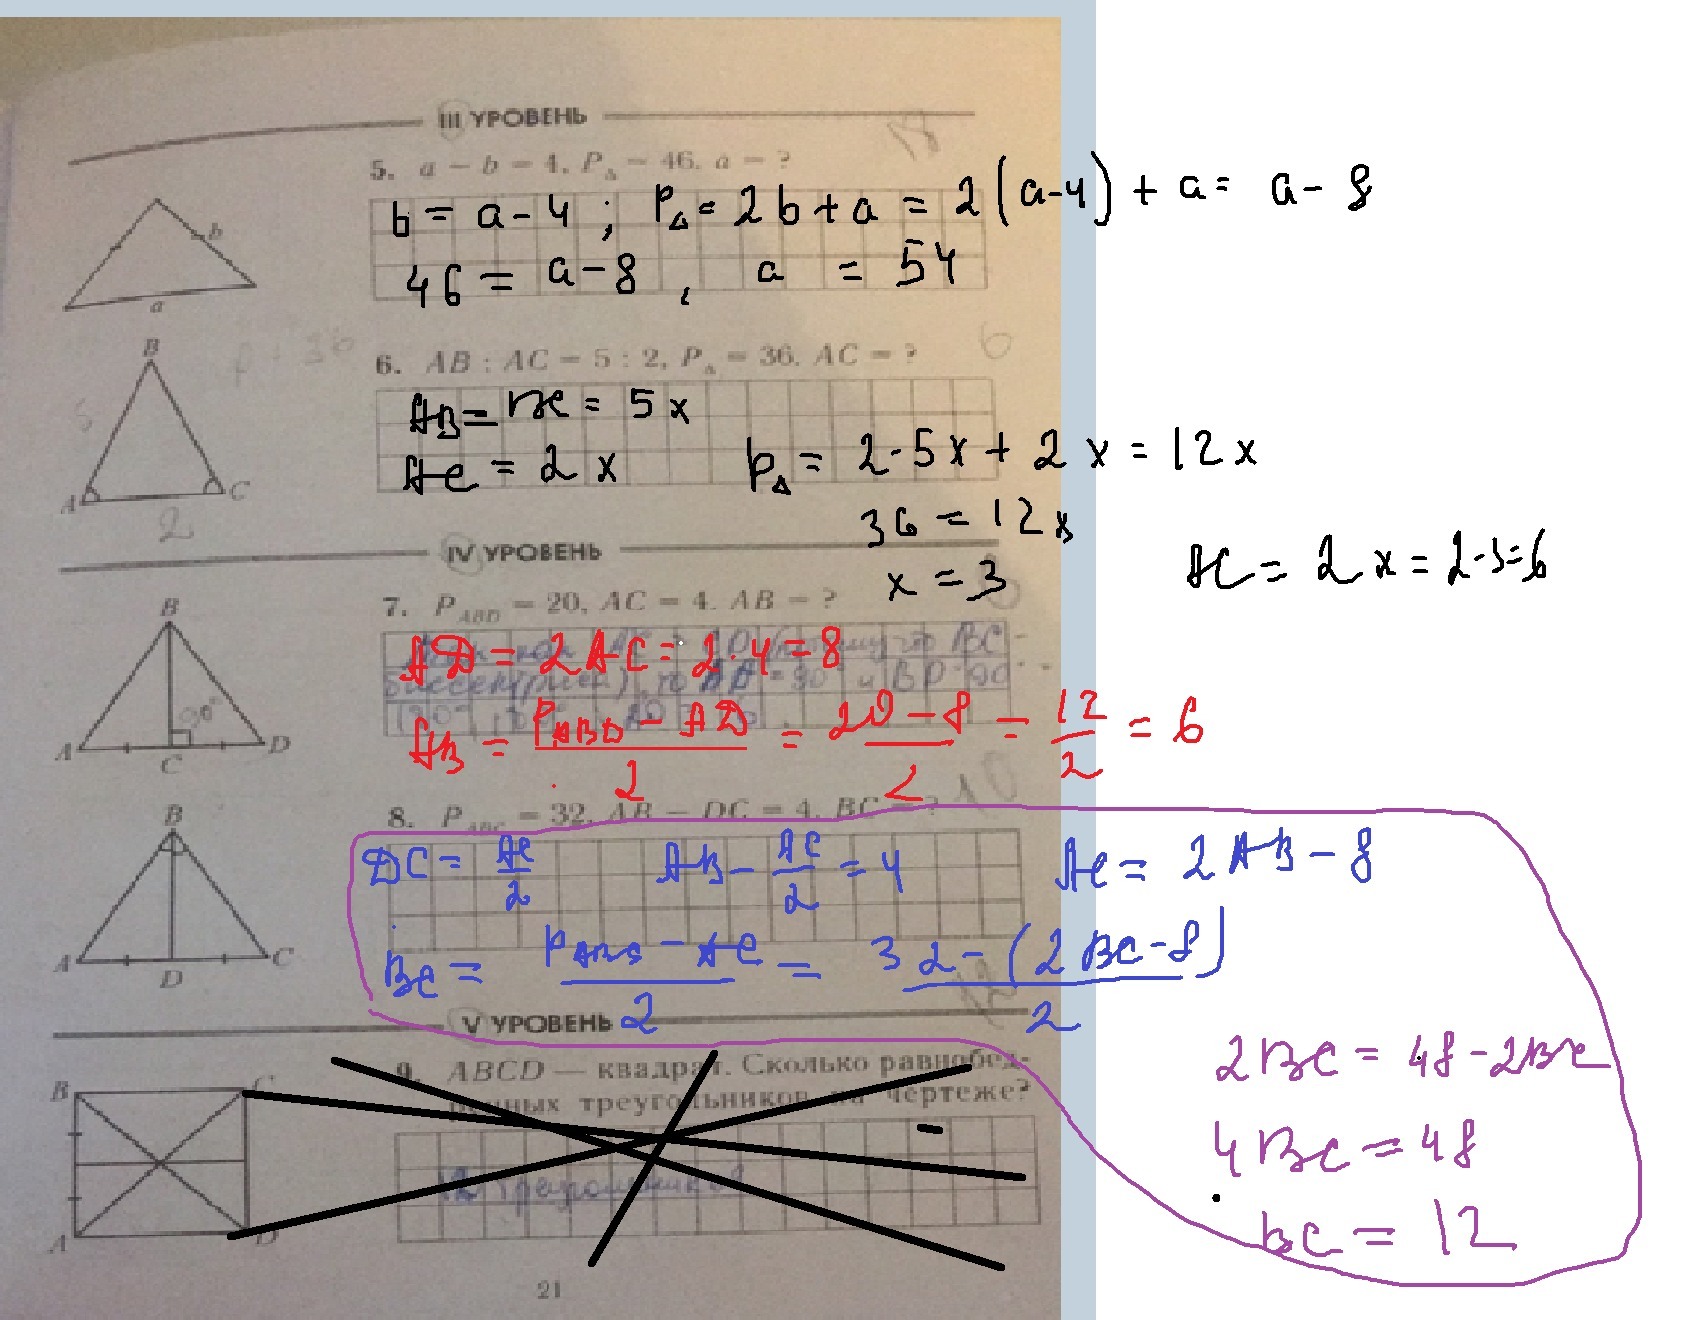 III УРОВЕНЬ
18
5. a − b = 4, P△ = 46. a = ?
b = a - 4 ; P△ = 2b + a = 2(a-4) + a = a - 8
46 = a - 8 , a = 54
b
a
6. AB : AC = 5 : 2, P△ = 36. AC = ?
6
B
5
A
C
2
AB = BC = 5x
AC = 2x
P△ = 2·5x + 2x = 12x
36 = 12x
x = 3
AC = 2x = 2·3=6
IV УРОВЕНЬ
7. P ABD = 20, AC = 4. AB = ?
B
90°
A
C
D
AD = 2AC = 2·4 = 8
AB = P ABD - AD / 2 = 20 - 8 / 2 = 12 / 2 = 6
10
8. P ABC = 32, AB − DC = 4. BC = ?
B
A
D
C
DC = AC / 2
AB - AC / 2 = 4
AC = 2AB - 8
BC = P ABC - AC / 2 = 32 - (2BC - 8) / 2
2BC = 48 - 2BC
4BC = 48
BC = 12
V УРОВЕНЬ
9. ABCD — квадрат. Сколько равнобед-
ренных треугольников на чертеже?
B
C
A
D
12 треугольников
21